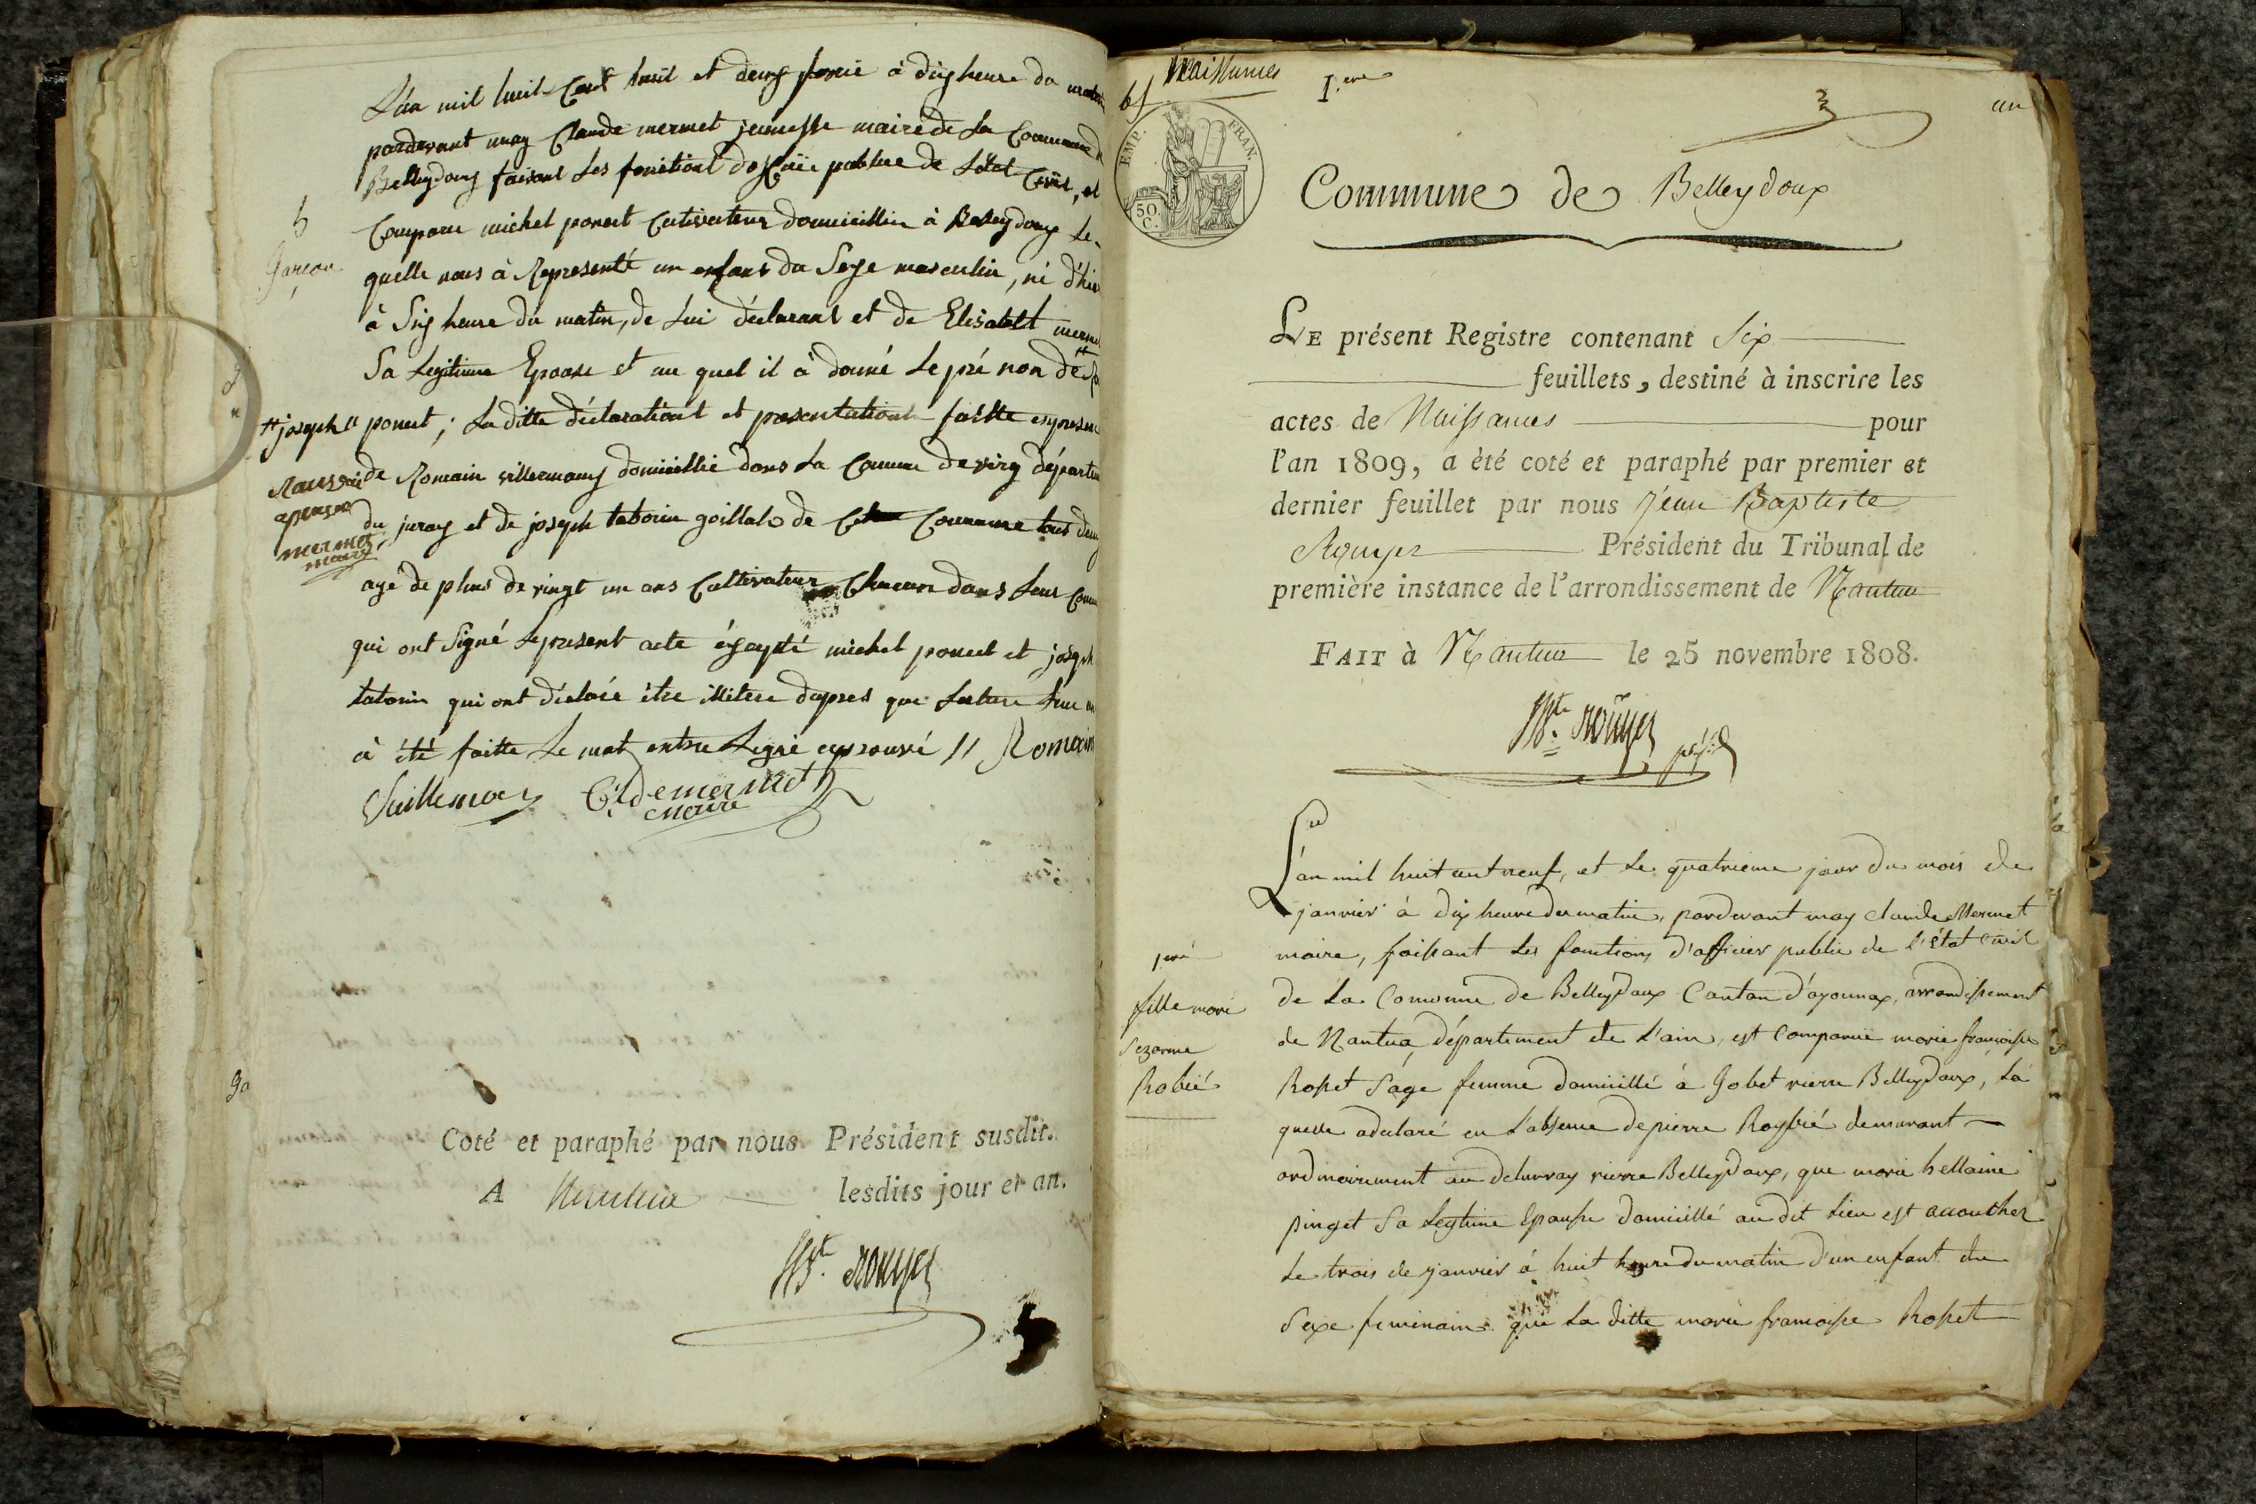 L'an mil huit Cent huit et deux fevrié à dix heure du matin
pardevant moy Claude mermet jeunesse maire de La Commune d
Belleydoux faisant Les fonctiont d'officiié publice de Létat Civil, et
5
Comparu michel poncet Cutivateur domicillin à Belleydoux Le-
Garçon
quelle nous à Representé un enfant du Sexe masculin, né d'hier
à Six heure du matin, de Lui déclarant et de Elisabelt mermet
Sa Legitime Epoase et au quel il à donné Le pré non de
"joseph" poncet ; La ditte déclarationt et presentationt faitte en presen
Ranvoi
de Romain villermoz domicillié dans La Commune de viry départem
aprouvé
du juray et de joseph taborin goillalo de Commune tous deux
mermet
maire
agé de plus de vingt un ans Cultivateur Chacun dans Leur Comm
qui ont Signé Le present acte éxcepté michel poncet et joseph
taborin qui ont déclaré être illitere dapres que Lecture Leur en
à été faitte Le mot entre Ligne aprouvé // Romain
Vuillermoz Cl.de mermet
maire
Coté et paraphé par nous Président susdit.
A Nantua lesdits jour et an.
JBte. Rouyer
Naissances
1.ere
un
EMP. FRAN.
50. C.
Commune de Belleydoux
LE présent Registre contenant Six
feuillets, destiné à inscrire les
actes de Naissances pour
l'an 1809, a été coté et paraphé par premier et
dernier feuillet par nous Jean Baptiste
Rouyer Président du Tribunal de
première instance de l'arrondissement de Nantua
FAIT à Nantua le 25 novembre 1808.
JBte. Rouyer présid
L'an mil huit cent neuf, et Le quatrieme jour du mois de
janvier à dix heure du matin, pardevant moy claude Mermet
maire, faissant Les fonctions d'officier public de l'état civil
de La Commune de Belleydoux Canton d'oyonnax, arrondissement
de Nantua, département de L'ain, est Comparue marie françoisse
Rosset Sage femme domicillé à Gobet rierre Belleydoux, La
quelle adeclaré en L'absence de pierre Roybié demurant
ordinairement au delavray rierre Belleydoux, que marie hellaine
pinget Sa Legtime Epousse domicillé au dit Lieu est accoucher
Le trois de janvier à huit heure du matin d'un enfant du
Sexe feminain que La ditte marie francoisse Rosset
1ere
fille marie
Sezanne
Robié